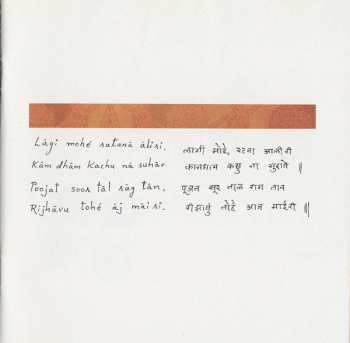 Lāgi mohé ratanā āliri.
Kām dhām kachu nā suhāv.
Poojat soor tāl rāg tān,
Rijhāvu tohé āj māi ri.
लागी मोहे, रटना आलीरी
कामधाम कछु ना सुहावे ||
पूजत सूर ताल राग तान
रीझावुं तोहे आज माईरी ||